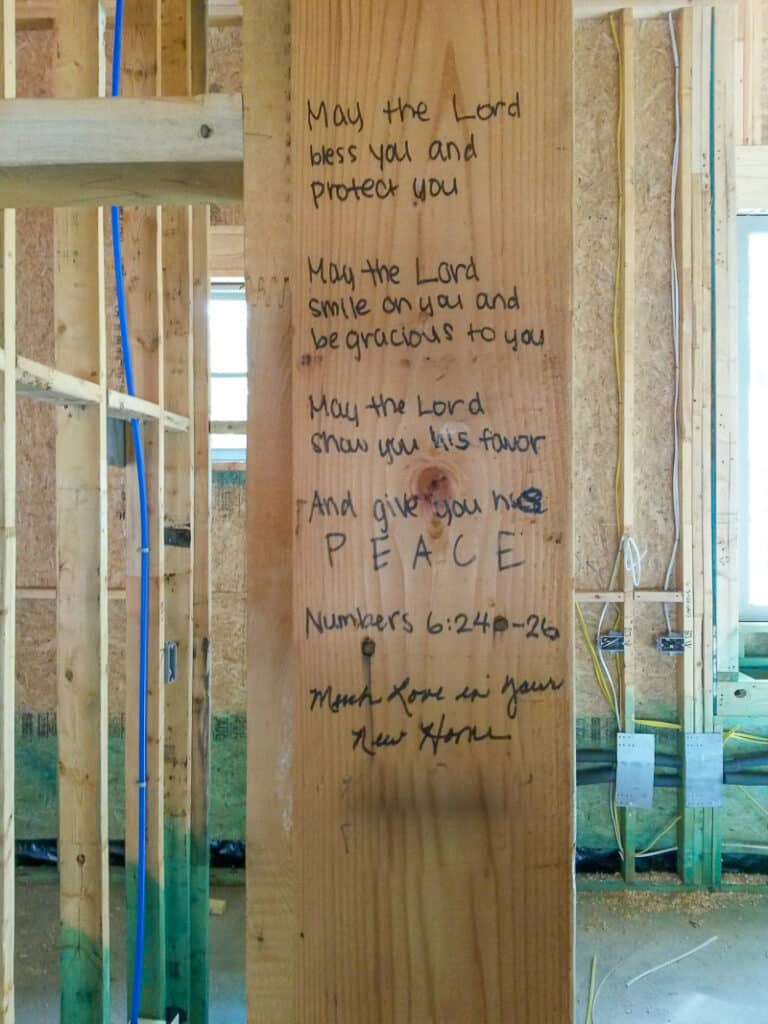 May the Lord
bless you and
protect you
May the Lord
smile on you and
be gracious to you
May the Lord
show you his favor
And give you his
PEACE
Numbers 6:24-26
Much Love in your
New Home